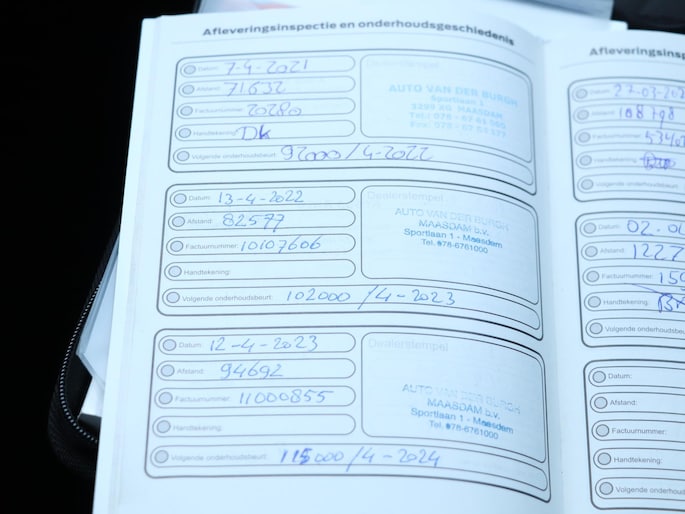 Afleveringsinspectie en onderhoudsgeschiedenis
Datum: 7-4-2021
Afstand: 71632
Factuurnummer: 20280
Handtekening: DK
Volgende onderhoudsbeurt: 92000/4-2022
Dealerstempel
AUTO VAN DER BURGH
Sportlaan 1
MAASDAM
Datum: 13-4-2022
Afstand: 82577
Factuurnummer: 10107606
Handtekening:
Volgende onderhoudsbeurt: 102000/4-2023
Dealerstempel
AUTO VAN DER BURGH
MAASDAM b.v.
Sportlaan 1 - Maasdam
Tel. 078-6761000
Datum: 12-4-2023
Afstand: 94692
Factuurnummer: 11000855
Handtekening:
Volgende onderhoudsbeurt: 115000/4-2024
Dealerstempel
AUTO VAN DER BURGH
MAASDAM b.v.
Sportlaan 1 - Maasdam
Tel. 078-6761000
Afleveringsinsp
Datum: 27-03-202
Afstand: 108798
Factuurnummer:
Handtekening:
Volgende onderhoudsbeurt
Datum: 02.
Afstand: 1227
Factuurnummer: 159
Handtekening:
Volgende onderhoudsbeu
Datum:
Afstand:
Factuurnummer:
Handtekening:
Volgende onderhoudsb